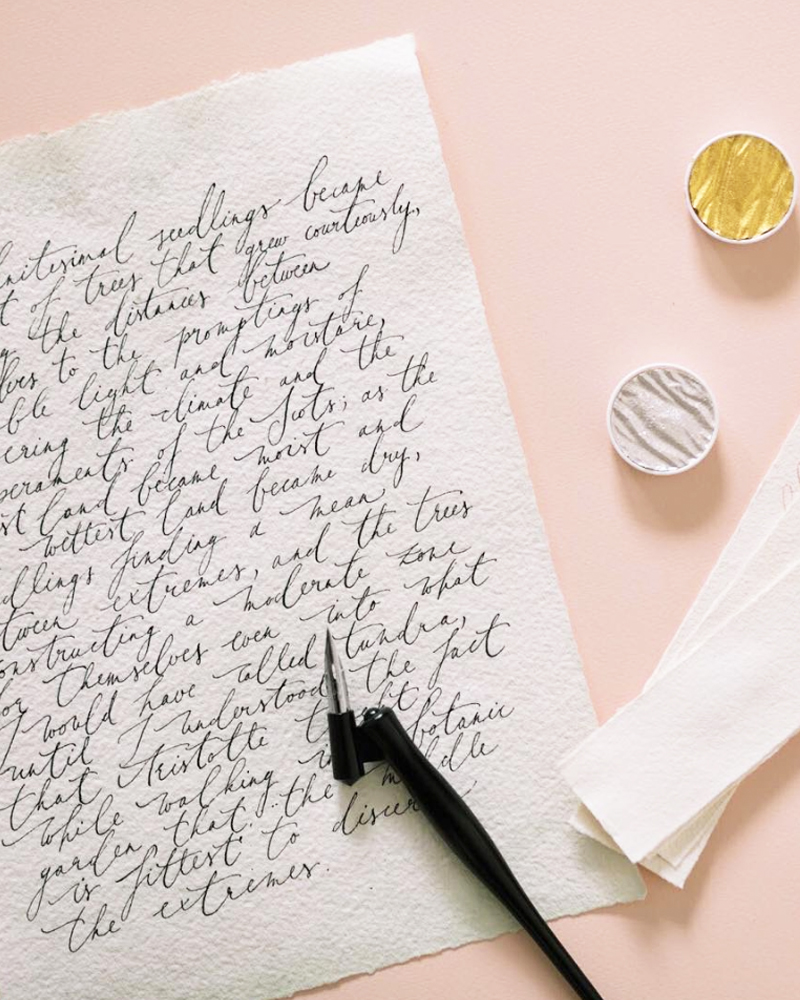 seedlings became
of trees that grew courteously,
the distances between
to the promptings of
light and moisture,
the climate and the
of the Scots; as the
land became moist and
wettest land became dry,
finding a mean
extremes, and the trees
a moderate zone
themselves even into what
I would have called tundra,
until I understood the fact
that Aristotle
while walking botanic
garden that "the middle
is fittest to
the extremes.